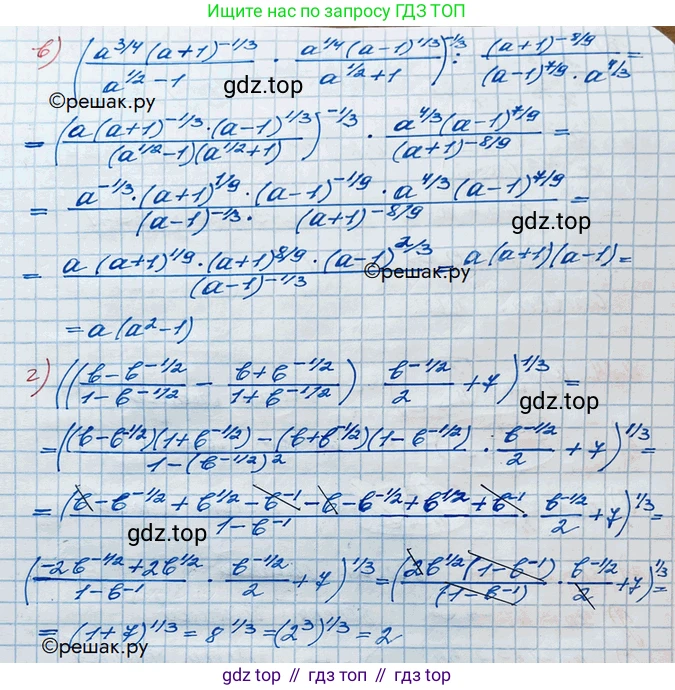 Ищите решение по запросу ГДЗ ТОП
в) ( (a^(3/4) (a+1)^(-1/3))/(a^(1/2) - 1) · (a^(1/4) (a-1)^(1/3))/(a^(1/2) + 1) )^(-1/3) : ((a+1)^(-8/9))/((a-1)^(7/9) · a^(4/3)) =
gdz.top
©reшак.ру
= ( (a(a+1)^(-1/3) · (a-1)^(1/3))/((a^(1/2) - 1)(a^(1/2) + 1)) )^(-1/3) · (a^(4/3) (a-1)^(7/9))/((a+1)^(-8/9)) =
= (a^(-1/3) · (a+1)^(1/9) · (a-1)^(-1/9) · a^(4/3) (a-1)^(7/9))/((a-1)^(-1/3) · (a+1)^(-8/9)) =
gdz.top
= (a(a+1)^(1/9) · (a+1)^(8/9) · (a-1)^(2/3))/((a-1)^(-1/3)) = a(a+1)(a-1) =
©reшак.ру
= a(a²-1)
г) ( ( (b - b^(-1/2))/(1 - b^(-1/2)) - (b + b^(-1/2))/(1 + b^(-1/2)) ) · b^(-1/2)/2 + 7 )^(1/3) =
gdz.top
= ( ((b - b^(-1/2))(1 + b^(-1/2)) - (b + b^(-1/2))(1 - b^(-1/2)))/(1 - (b^(-1/2))²) · b^(-1/2)/2 + 7 )^(1/3) =
= ( (b - b^(-1/2) + b^(1/2) - b^(-1) - b - b^(-1/2) + b^(1/2) + b^(-1))/(1 - b^(-1)) · b^(-1/2)/2 + 7 )^(1/3) =
gdz.top
( (-2b^(-1/2) + 2b^(1/2))/(1 - b^(-1)) · b^(-1/2)/2 + 7 )^(1/3) = ( (2b^(1/2) (1 - b^(-1)))/((1 - b^(-1))) · b^(-1/2)/2 + 7 )^(1/3) =
= (1+7)^(1/3) = 8^(1/3) = (2³)^(1/3) = 2
©reшак.ру
gdz.top // gdz.top // gdz.top